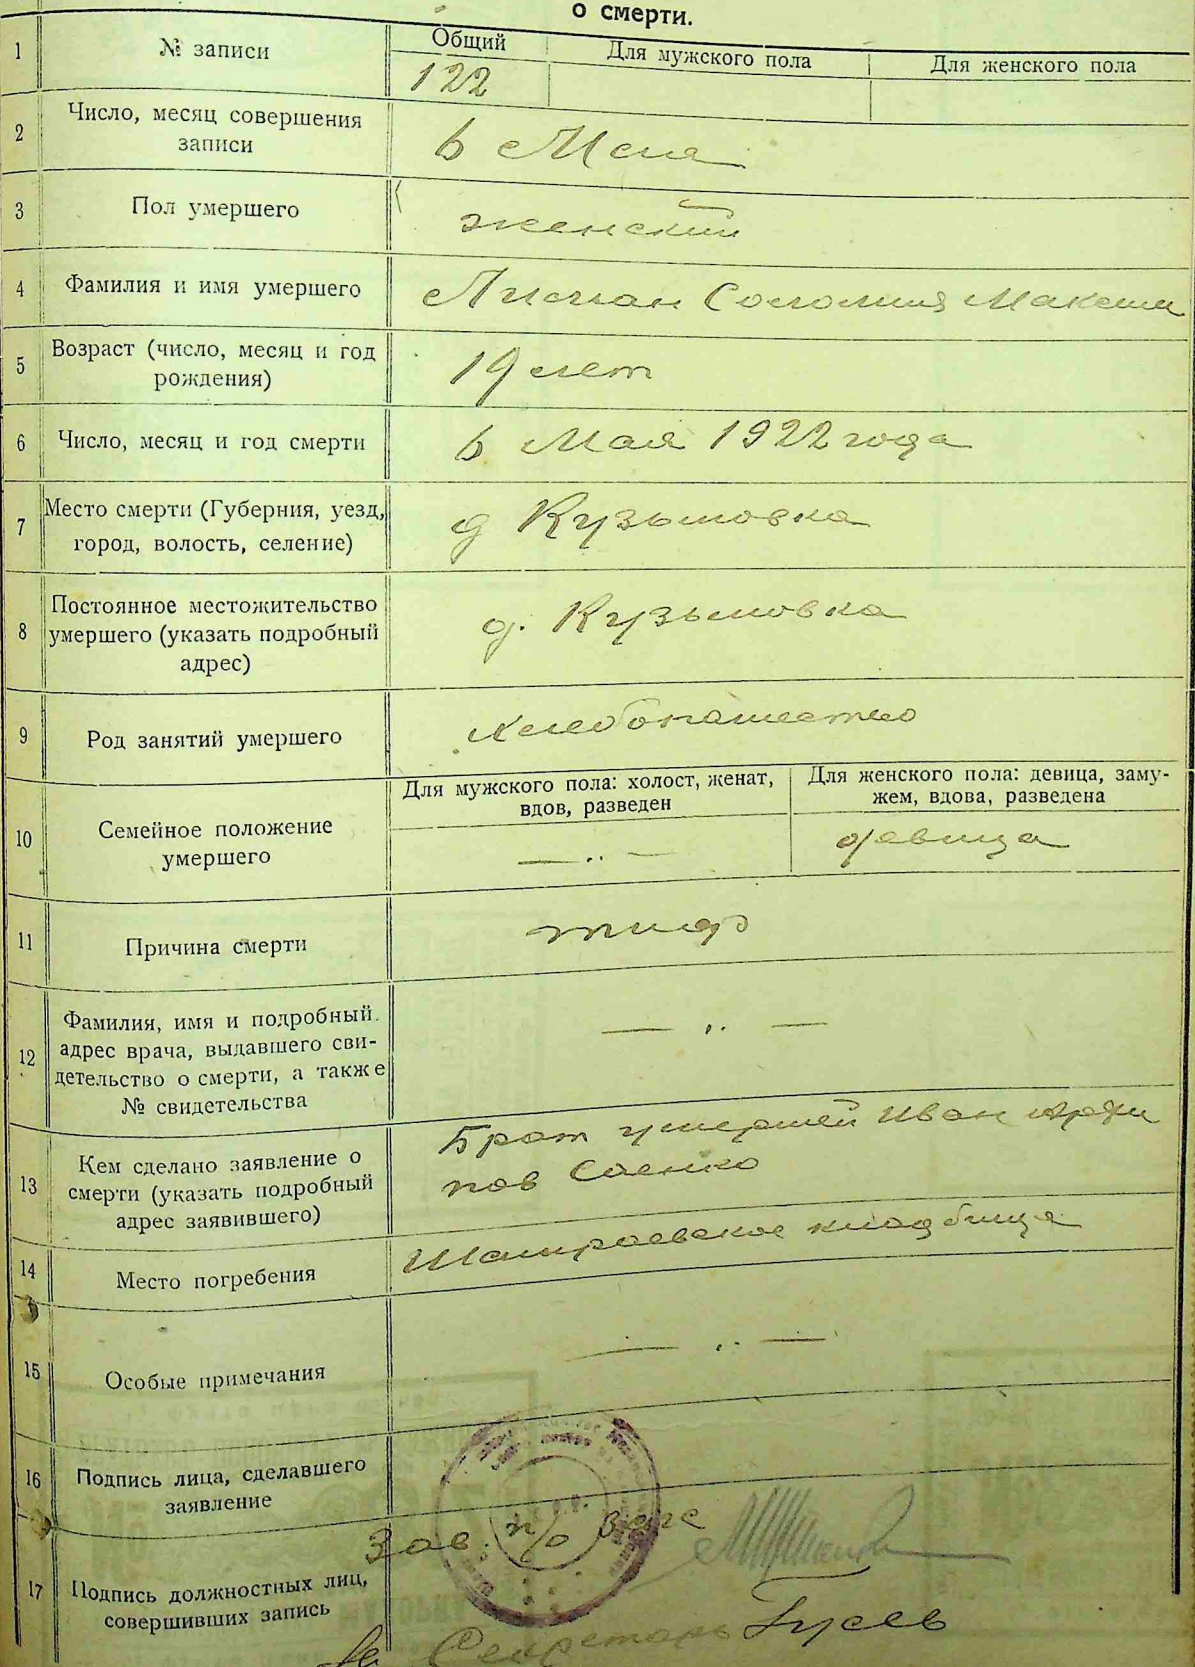 о смерти.
1 № записи Общий Для мужского пола Для женского пола
122
2 Число, месяц совершения
записи
6 Мая
3 Пол умершего женский
4 Фамилия и имя умершего Соломия Максим
5 Возраст (число, месяц и год
рождения)
19 лет
6 Число, месяц и год смерти 6 Мая 1922 года
7 Место смерти (Губерния, уезд,
город, волость, селение)
д Кузьмовка
8 Постоянное местожительство
умершего (указать подробный
адрес)
д. Кузьмовка
9 Род занятий умершего Хлебопашество
10 Семейное положение
умершего
Для мужского пола: холост, женат,
вдов, разведен
— „ —
Для женского пола: девица, заму-
жем, вдова, разведена
девица
11 Причина смерти тиф
12 Фамилия, имя и подробный
адрес врача, выдавшего сви-
детельство о смерти, а также
№ свидетельства
— „ —
13 Кем сделано заявление о
смерти (указать подробный
адрес заявившего)
Брат умершей Иван Архи
пов Саенко
14 Место погребения кладбища
15 Особые примечания — „ —
16 Подпись лица, сделавшего
заявление
17 Подпись должностных лиц,
совершивших запись
Зав. п/о Загс
Секретарь Гусев